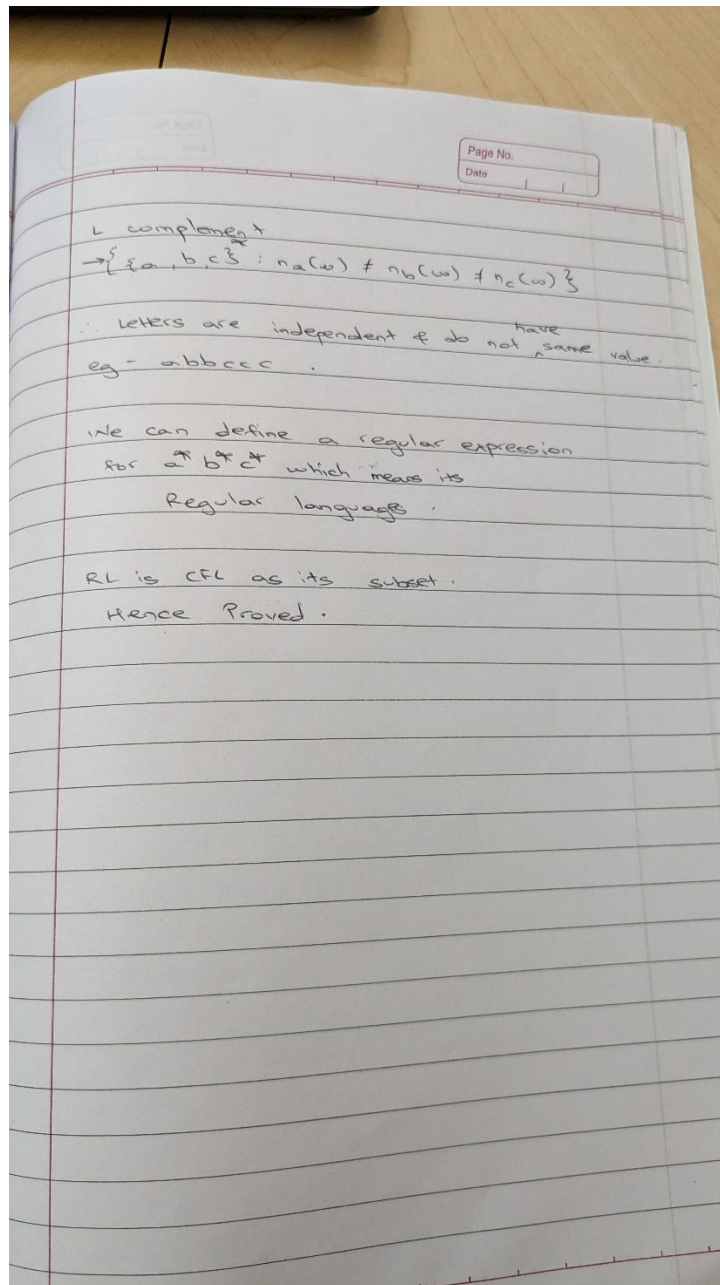 Page No.
Date
L complement
→{ {a, b, c}* : na(w) ≠ nb(w) ≠ nc(w) }
∴ Letters are independent & do not have same value.
eg - abbccc .
We can define a regular expression
for a* b* c* which means its
Regular languages .
RL is CFL as its subset .
Hence Proved .